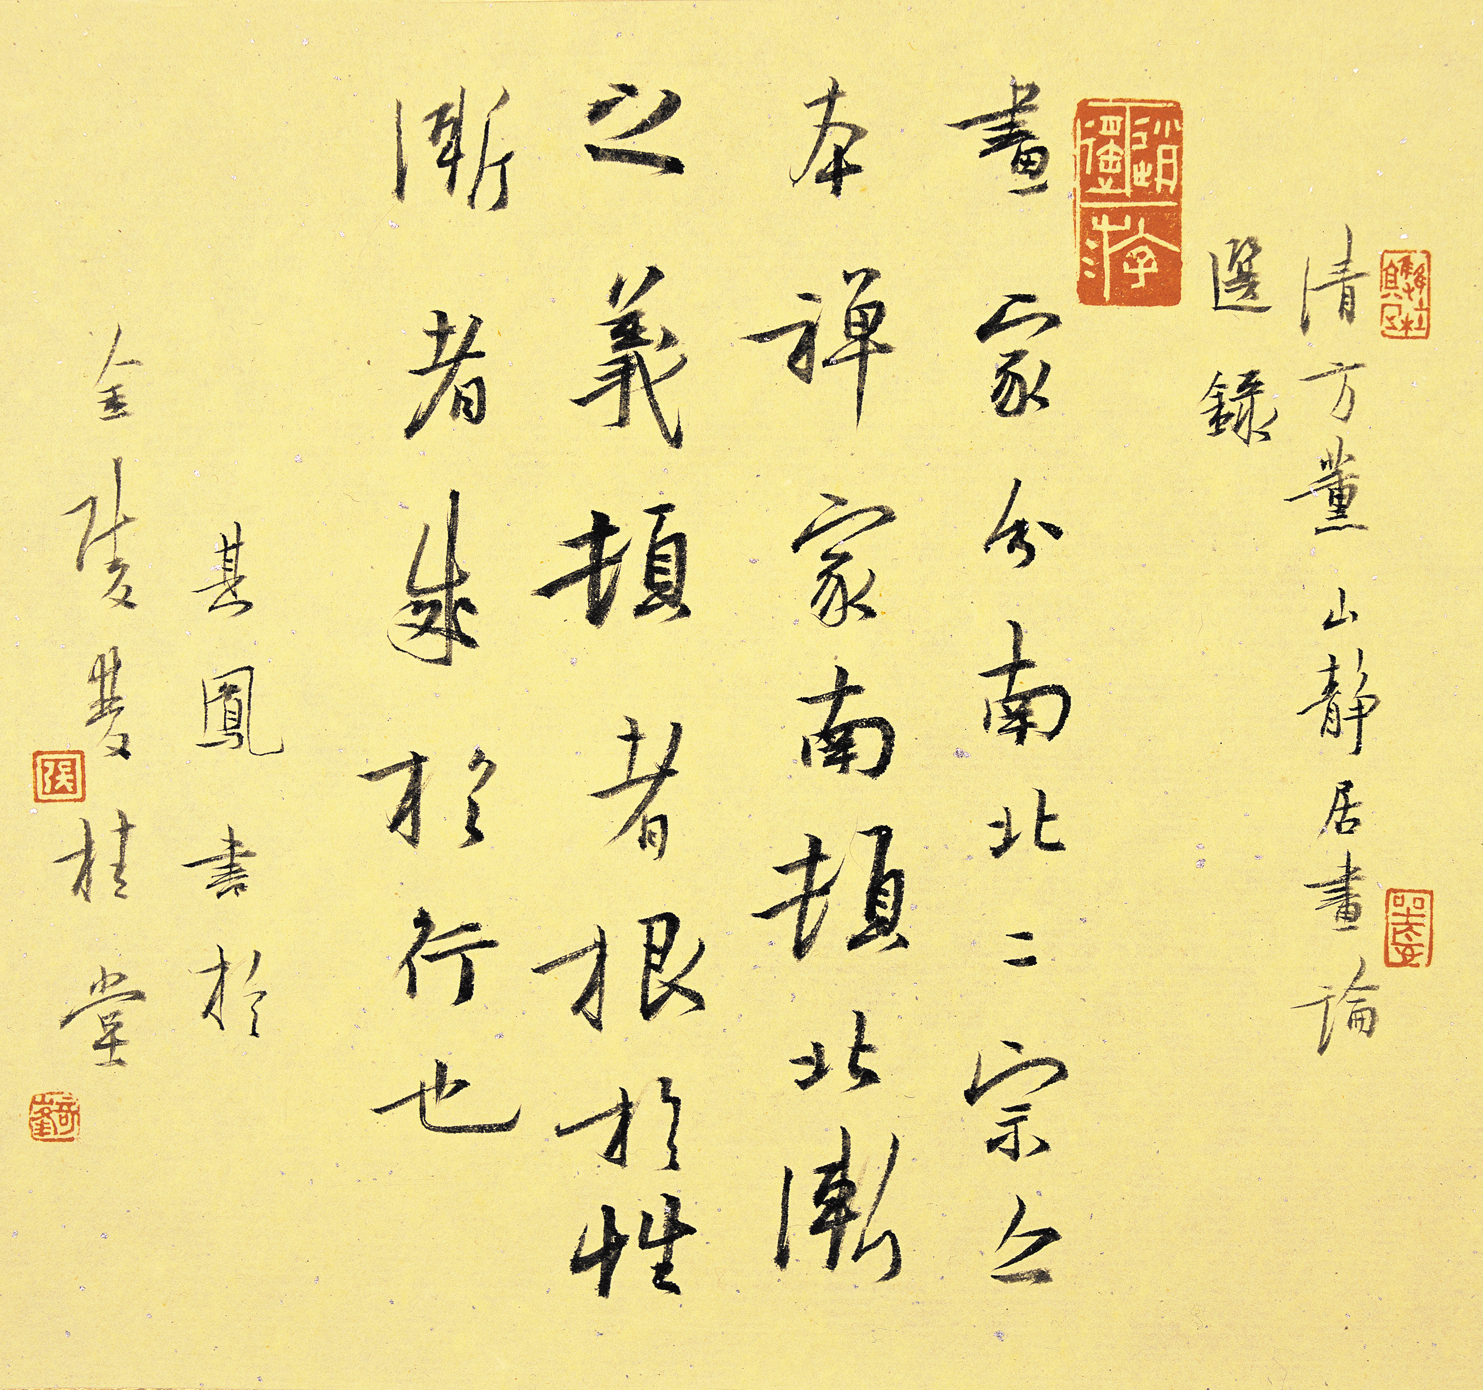 清方薰山靜居畫論
選錄
畫家分南北二宗亦
本禪家南頓北漸
之義頓者根於性
漸者成於行也
其鳳書於
金陵雙桂堂
張